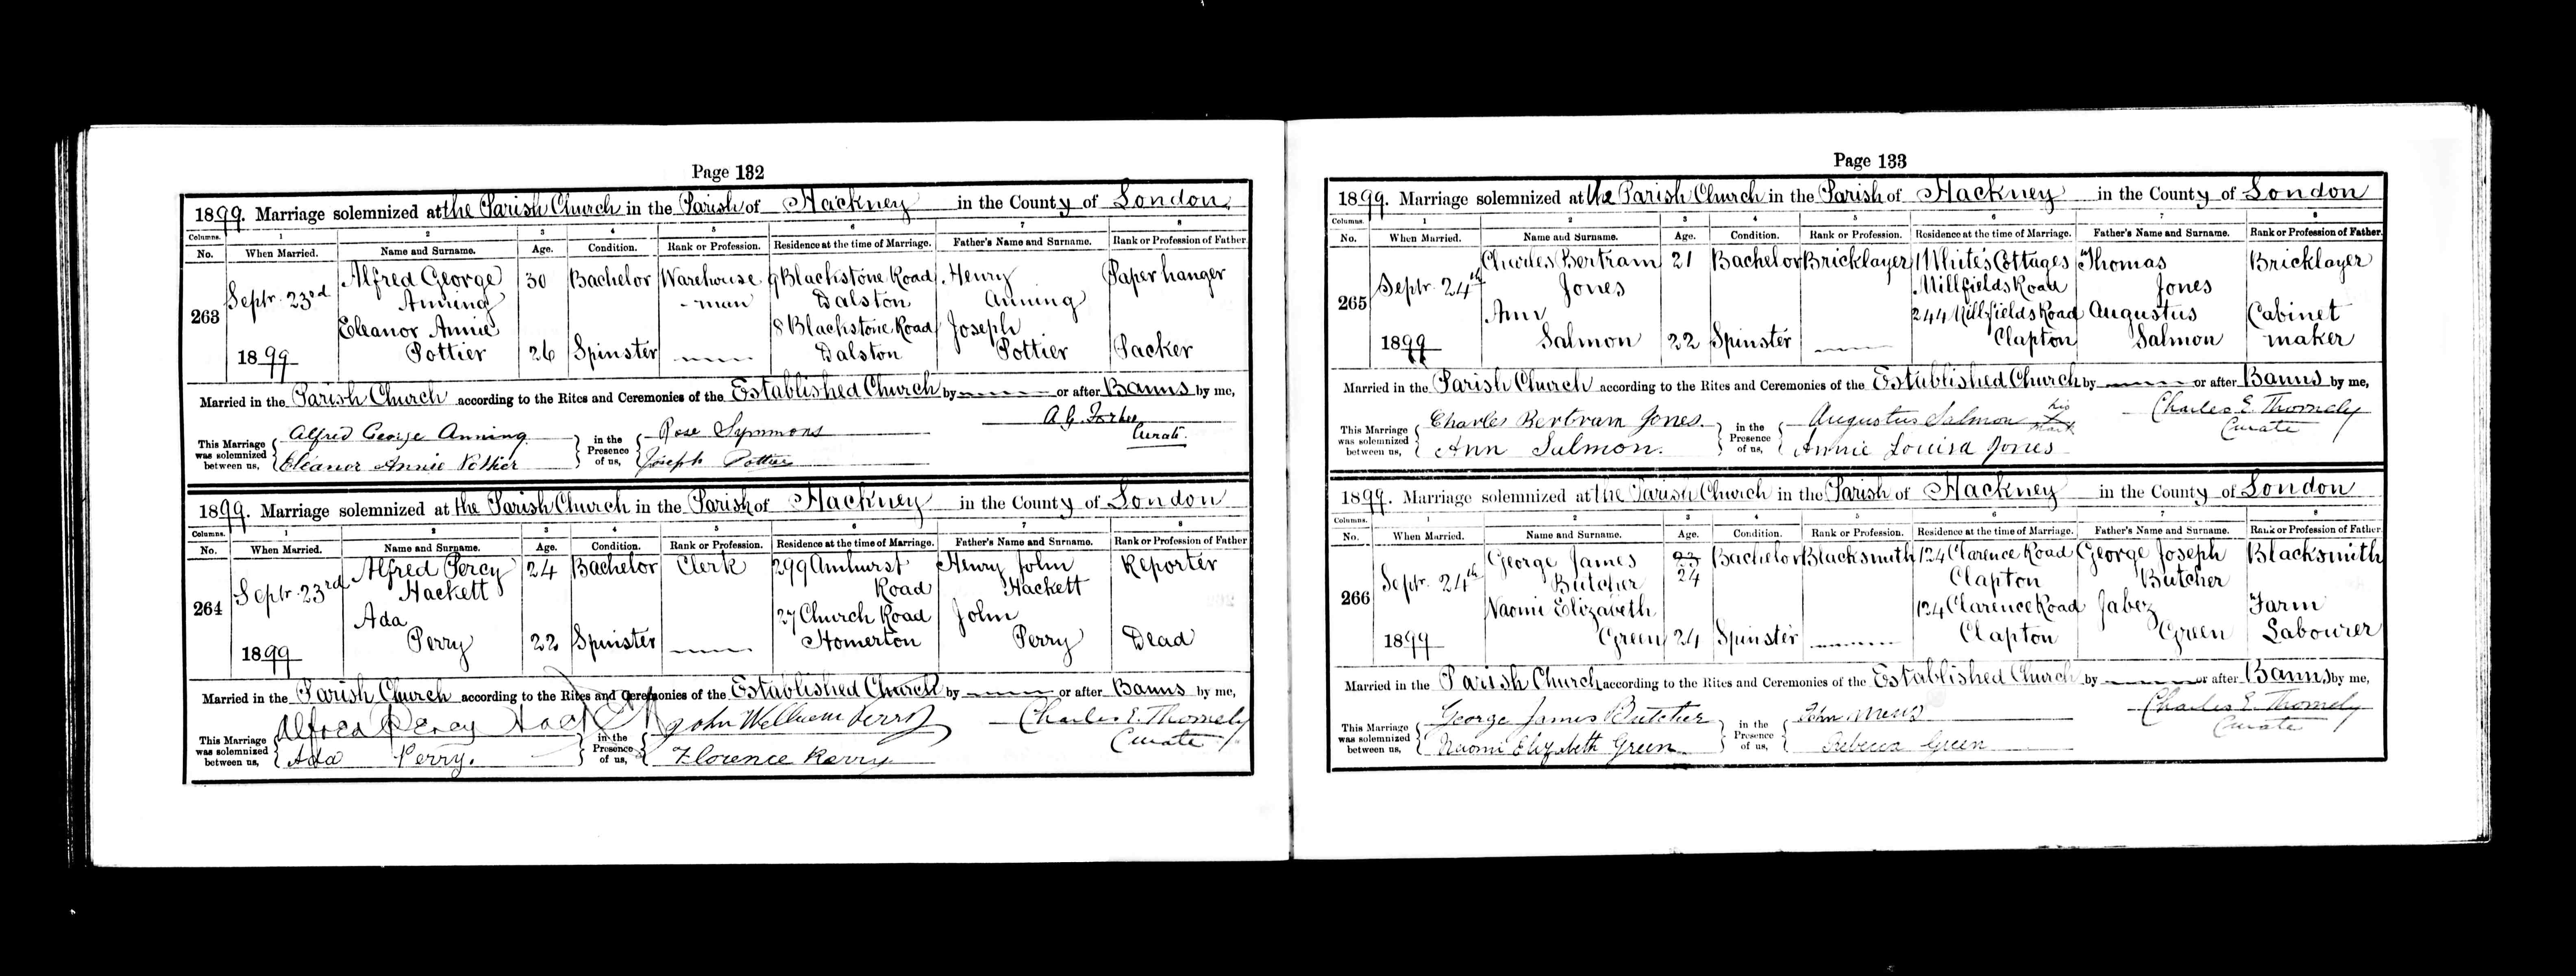 Page 132
1899. Marriage solemnized at the Parish Church in the Parish of Hackney in the County of London
Columns. 1 2 3 4 5 6 7 8
No. When Married. Name and Surname. Age. Condition. Rank or Profession. Residence at the time of Marriage. Father's Name and Surname. Rank or Profession of Father.
263 Septr. 23rd 1899
Alfred George Anning 30 Bachelor Warehouse-man 9 Blackstone Road Dalston Henry Anning Paper hanger
Eleanor Annie Pottier 26 Spinster 8 Blackstone Road Dalston Joseph Pottier Packer
Married in the Parish Church according to the Rites and Ceremonies of the Established Church by or after Banns by me,
A. G. Forbes
Curate.
This Marriage was solemnized between us, Alfred George Anning
Eleanor Annie Pottier
in the Presence of us, Rose Symmons
Joseph Pottier
1899. Marriage solemnized at the Parish Church in the Parish of Hackney in the County of London
Columns. 1 2 3 4 5 6 7 8
No. When Married. Name and Surname. Age. Condition. Rank or Profession. Residence at the time of Marriage. Father's Name and Surname. Rank or Profession of Father
264 Septr. 23rd 1899
Alfred Percy Hackett 24 Bachelor Clerk 299 Amhurst Road Henry John Hackett Reporter
Ada Perry 22 Spinster 27 Church Road Homerton John Perry Dead
Married in the Parish Church according to the Rites and Ceremonies of the Established Church by or after Banns by me,
Charles E. Thornely
Curate
This Marriage was solemnized between us, Alfred Percy Hackett
Ada Perry.
in the Presence of us, John William Perry
Florence Perry
Page 133
1899. Marriage solemnized at the Parish Church in the Parish of Hackney in the County of London
Columns. 1 2 3 4 5 6 7 8
No. When Married. Name and Surname. Age. Condition. Rank or Profession. Residence at the time of Marriage. Father's Name and Surname. Rank or Profession of Father.
265 Septr. 24th 1899
Charles Bertram Jones 21 Bachelor Bricklayer 1 White's Cottages Millfields Road Thomas Jones Bricklayer
Ann Salmon 22 Spinster 244 Millfields Road Clapton Augustus Salmon Cabinet maker
Married in the Parish Church according to the Rites and Ceremonies of the Established Church by or after Banns by me,
Charles E. Thornely
Curate
This Marriage was solemnized between us, Charles Bertram Jones.
Ann Salmon.
in the Presence of us, Augustus Salmon his mark
Annie Louisa Jones
1899. Marriage solemnized at the Parish Church in the Parish of Hackney in the County of London
Columns. 1 2 3 4 5 6 7 8
No. When Married. Name and Surname. Age. Condition. Rank or Profession. Residence at the time of Marriage. Father's Name and Surname. Rank or Profession of Father.
266 Septr. 24th 1899
George James Butcher 23 24 Bachelor Blacksmith 124 Clarence Road Clapton George Joseph Butcher Blacksmith
Naomi Elizabeth Green 24 Spinster 124 Clarence Road Clapton Jabez Green Farm Labourer
Married in the Parish Church according to the Rites and Ceremonies of the Established Church by or after Banns by me,
Charles E. Thornely
Curate
This Marriage was solemnized between us, George James Butcher
Naomi Elizabeth Green
in the Presence of us, John
Rebecca Green